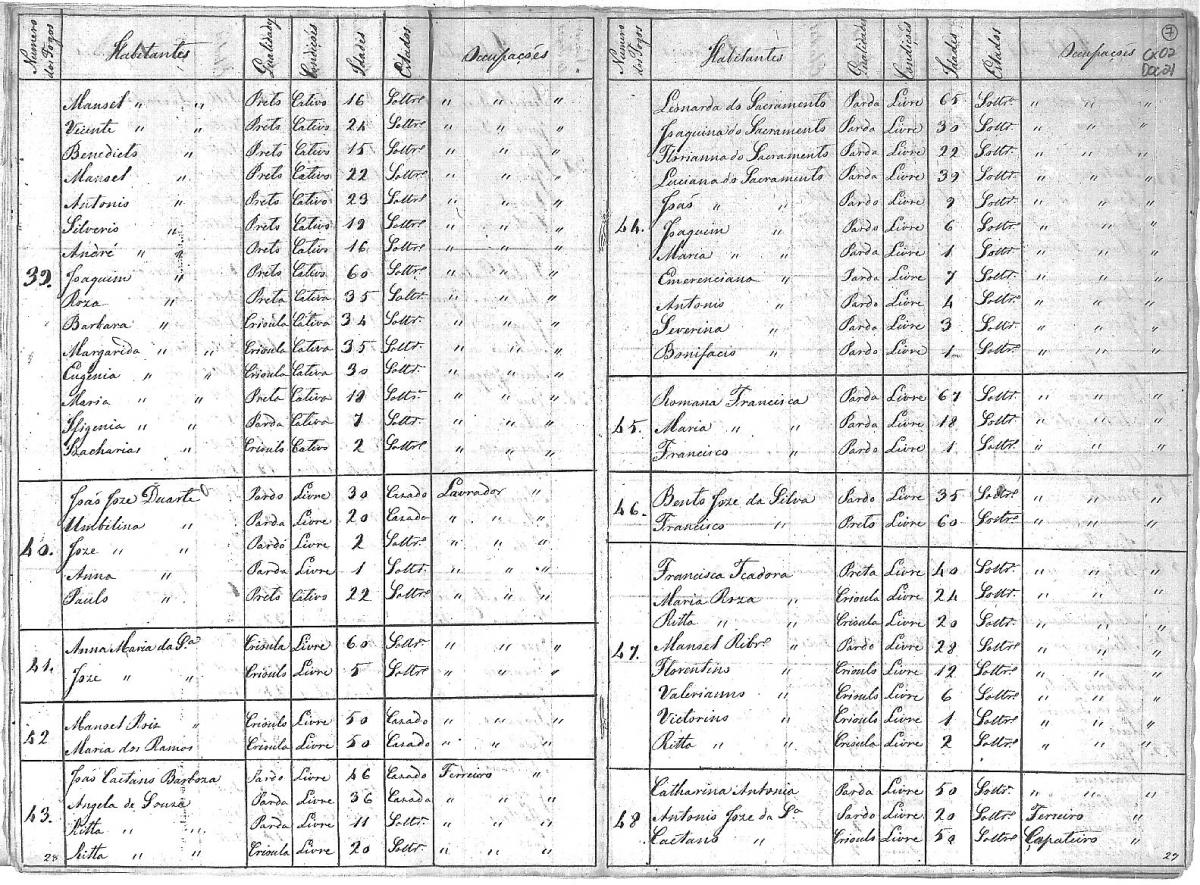 Numero dos Fogos Habitantes Qualidades Condições Idades Estados Occupações
Manoel " " Preto Cativo 16 Soltrº " " "
Vicente " " Preto Cativo 24 Soltrº " " "
Benedicto " Preto Cativo 15 Soltrº " " "
Manoel " Preto Cativo 22 Soltrº " " "
Antonio " Preto Cativo 23 Soltrº " " "
Silverio " Preto Cativo 19 Soltrº " " "
André " " Preto Cativo 16 Soltrº " " "
39. Joaquim " Preto Cativo 60 Soltrº " " "
Roza " Preta Cativa 35 Soltrª " " "
Barbara " Crioula Cativa 34 Soltrª " " "
Margarida " " Crioula Cativa 35 Soltrª " " "
Eugenia " " Crioula Cativa 30 Soltrª " " "
Maria " " Preta Cativa 18 Soltrª " " "
Ifigenia " " Parda Cativa 7 Soltrª " " "
Zacharias " Crioulo Cativo 2 Soltrº " " "
João Joze Duarte Pardo Livre 30 Cazado Lavrador " "
Umbilina " Parda Livre 20 Cazada " " "
40. Joze " " Pardo Livre 2 Soltrº " " "
Anna " Parda Livre 1 Soltrª " " "
Paulo " Preto Cativo 22 Soltrº " " "
Anna Maria da Sª Crioula Livre 60 Soltrª " "
41. Joze " " Crioulo Livre 5 Soltrº " " "
Manoel Roiz " Crioulo Livre 50 Cazado " " "
42 Maria dos Ramos Crioula Livre 50 Cazada " " "
João Caetano Barboza Pardo Livre 46 Cazado Ferreiro "
Angela de Souza Parda Livre 36 Cazada " " "
43. Ritta " " Parda Livre 11 Soltrª " " "
Ritta " " Crioula Livre 20 Soltrª " " "
28
Numero dos Fogos Habitantes Qualidades Condições Idades Estados Occupações
7
CX02
DOC31
Leonarda do Sacramento Parda Livre 65 Soltrª " " "
Joaquina do Sacramento Parda Livre 30 Soltrª " " "
Florianna do Sacramento Parda Livre 22 Soltrª " " "
Luciana do Sacramento Parda Livre 39 Soltrª " " "
João " " Pardo Livre 9 Soltrº " " "
44. Joaquim " Pardo Livre 6 Soltrº " " "
Maria " " Parda Livre 1 Soltrª " " "
Emerenciana " Parda Livre 7 Soltrª " " "
Antonio " Pardo Livre 4 Soltrº " " "
Severina " Parda Livre 3 Soltrª " " "
Bonifacio " Pardo Livre 1 Soltrº " " "
Romana Francisca Parda Livre 67 Soltrª " " "
45. Maria " " Parda Livre 18 Soltrª " " "
Francisco " Pardo Livre 1 Soltrº " " "
46. Bento Joze da Silva Pardo Livre 35 Soltrº " " "
Francisco " Preto Livre 60 Soltrº " " "
Francisca Teadora Preta Livre 40 Soltrª " " "
Maria Roza " Crioula Livre 24 Soltrª " " "
Ritta " " Crioula Livre 20 Soltrª " " "
47. Manoel Ribrº " Pardo Livre 28 Soltrº " " "
Florentino " Crioulo Livre 12 Soltrº " " "
Valerianno " Crioulo Livre 6 Soltrº " " "
Victorino " Crioulo Livre 1 Soltrº " " "
Ritta " " Crioula Livre 2 Soltrª " " "
Catharina Antonia Parda Livre 50 Soltrª " " "
48 Antonio Joze da Sª Pardo Livre 20 Soltrº Ferreiro "
Caetano " Crioulo Livre 50 Soltrº Çapateiro "
29